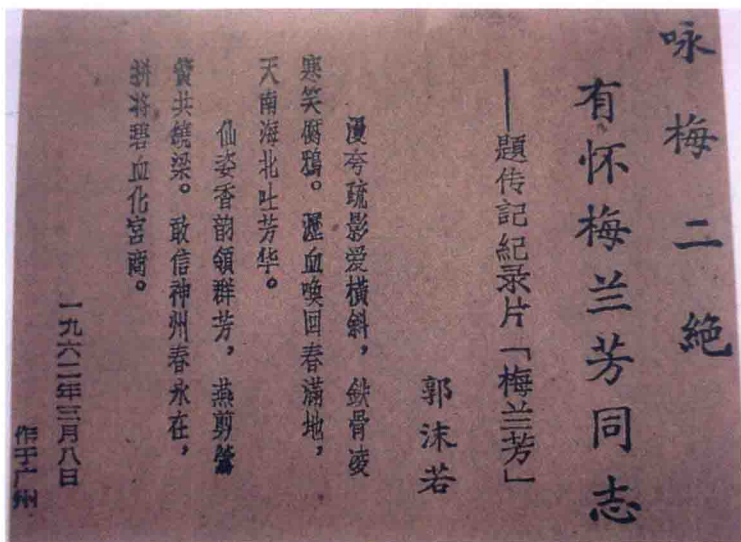 咏梅二絕
有怀梅兰芳同志
——題传記紀录片「梅兰芳」
郭沫若
漫夸疏影爱横斜，鉄骨凌
寒笑腐鴉。瀝血喚回春滿地，
天南海北吐芳华。
仙姿香韵領群芳，燕剪鶯
簧共繞梁。敢信神州春永在，
拚将碧血化宮商。
一九六二年三月八日
作于广州